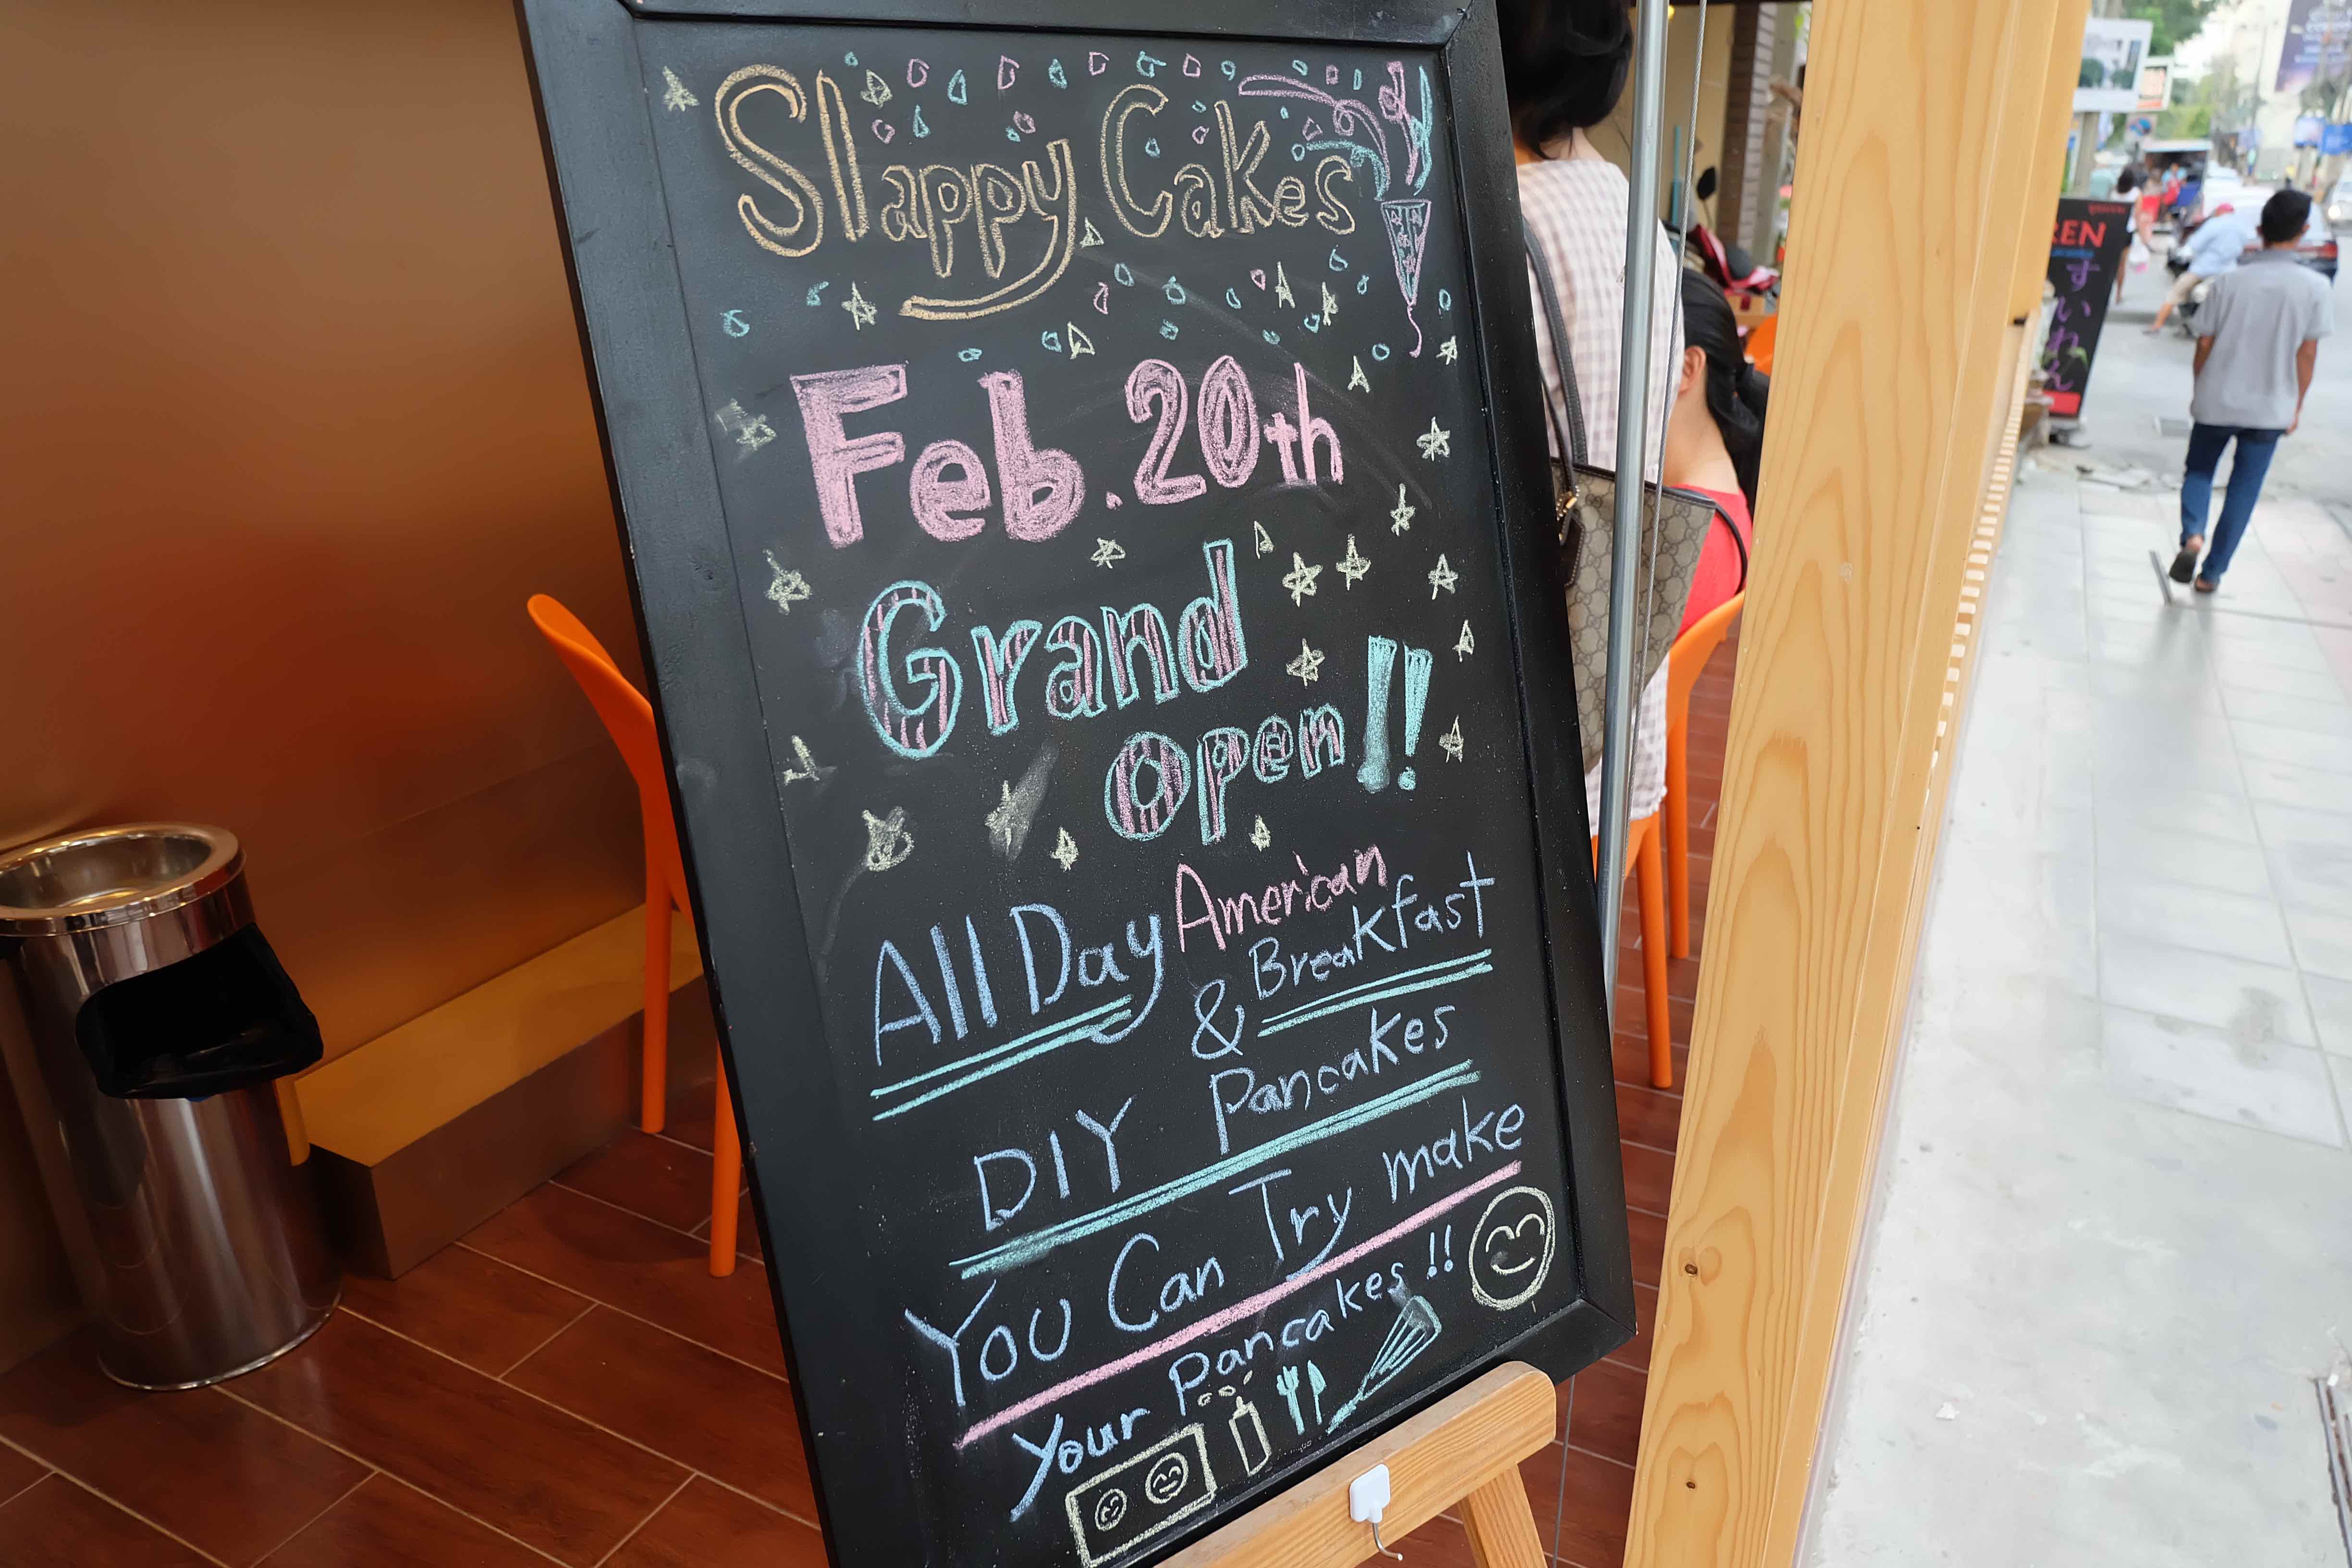 Slappy Cakes
Feb. 20th
Grand
open!!
All Day American
& Breakfast
DIY Pancakes
You Can Try make
Your Pancakes!!
REN
すいれん